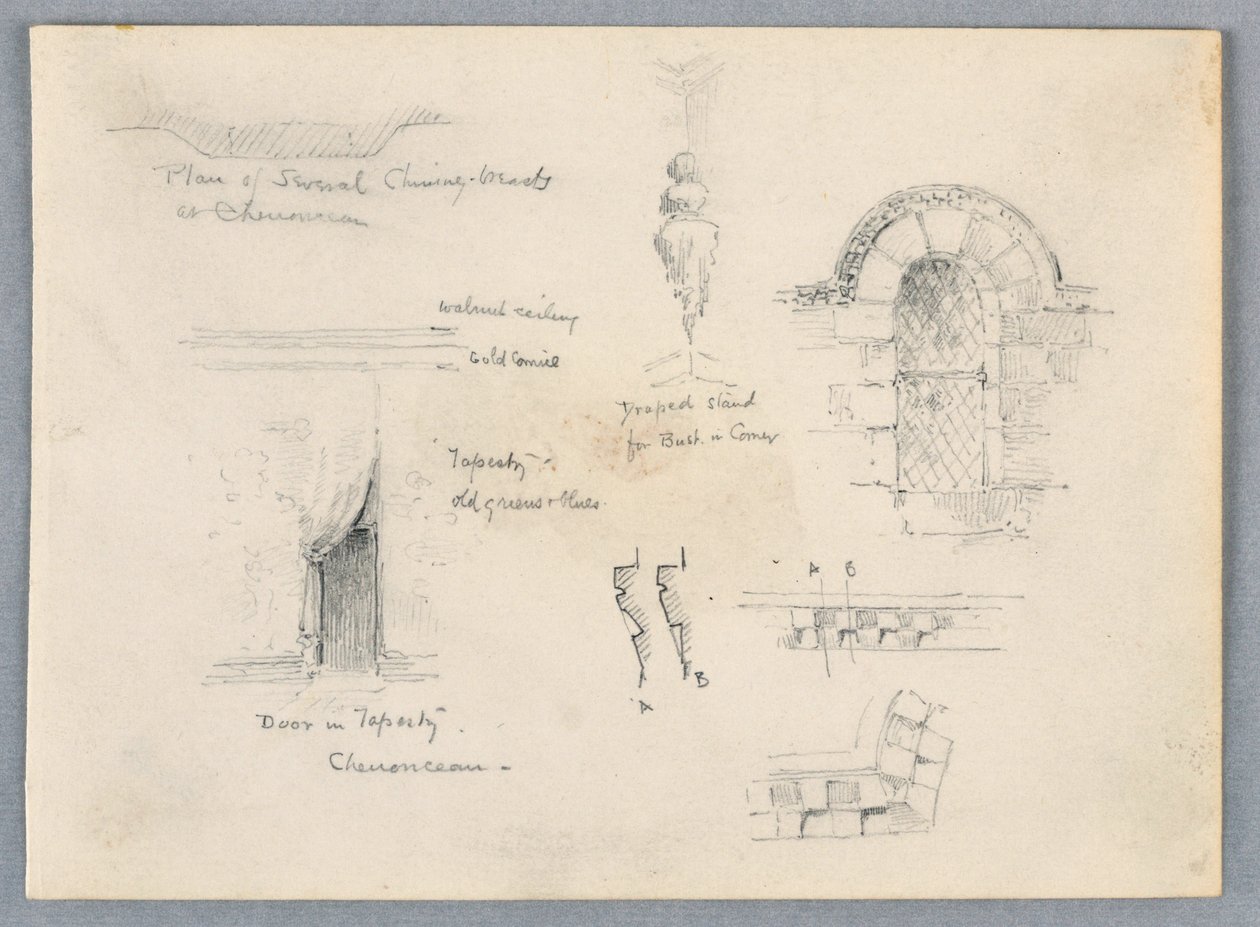 Plan of Several Chimney-breasts
at Chenonceau
walnut ceiling
Gold Cornice
Draped stand
for Bust. in Corner
Tapestry -
old greens & blues.
A B
B
A
Door in Tapestry.
Chenonceau -